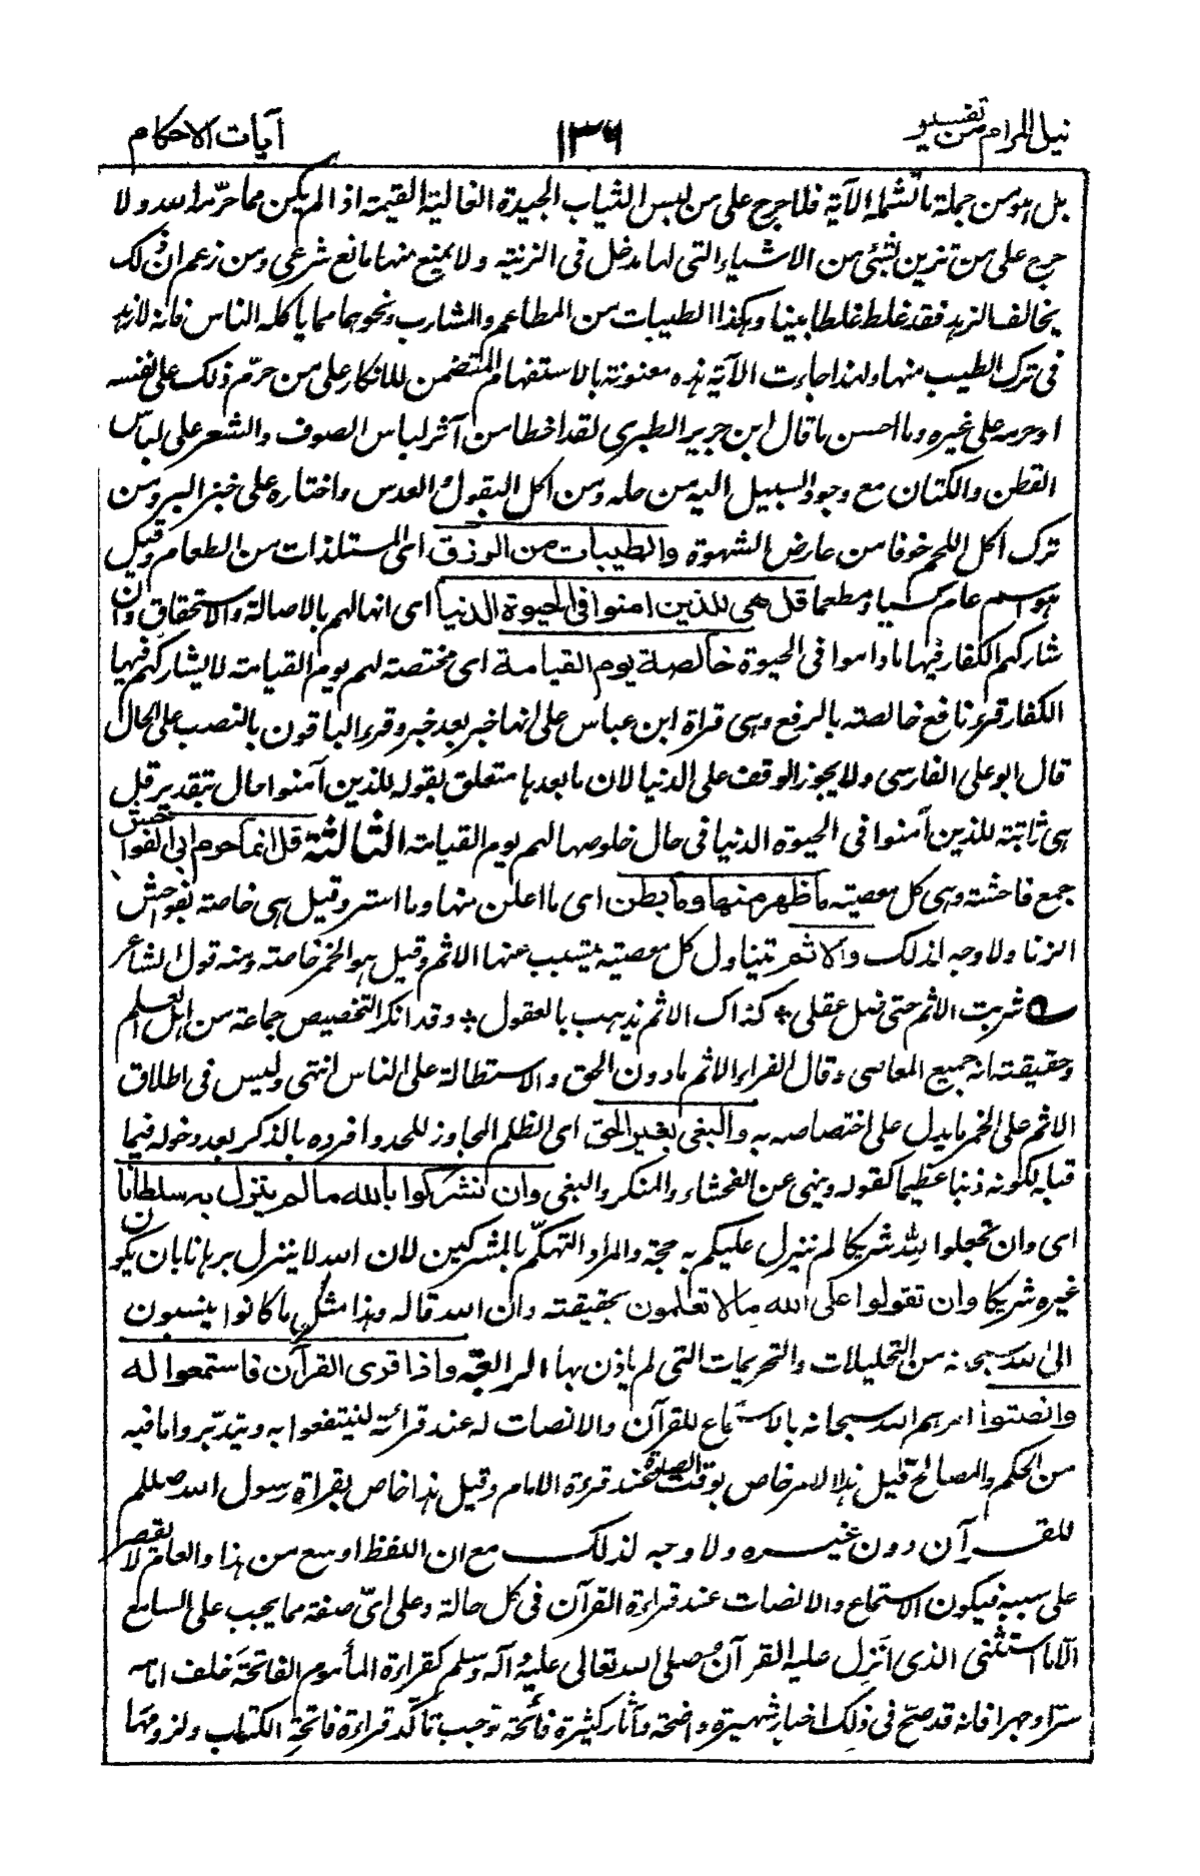 نيل المرام من تفسير
١٣٦
آيات الاحكام
بل هو من جملة ما تشمله الآية فلا حرج على من لبس الثياب الجيدة الغالية القيمة اذا لم يكن مما حرّمه الله ولا
حرج على من تزين بشئ من الاشياء التى لها مدخل فى الزينة ولا يمنع منها مانع شرعى ومن زعم ان ذلك
يخالف الزهد فقد غلط غلطا بينا وهكذا الطيبات من المطاعم والمشارب ونحوهما مما ياكله الناس فانه لا زهد
فى ترك الطيب منها ولهذا جاءت الآية هذه معنونة بالاستفهام المتضمن للانكار على من حرّم ذلك على نفسه
او حرمه على غيره وما احسن ما قال ابن جرير الطبرى لقد اخطا من آثر لباس الصوف والشعر على لباس
القطن والكتان مع وجود السبيل اليه من حله ومن اكل البقول والعدس واختاره على خبز البر ومن
ترك اكل اللحم خوفا من عارض الشهوة والطيبات من الرزق اى المستلذات من الطعام وقيل
هو اسم عام كسبا ومطعما قل هى للذين امنوا فى الحيوة الدنيا اى انها لهم بالاصالة والاستحقاق وان
شاركهم الكفار فيها ما داموا فى الحيوة خالصة يوم القيامة اى مختصة لهم يوم القيامة لا يشاركهم فيها
الكفار قرء نافع خالصة بالرفع وهى قراة ابن عباس على انها خبر بعد خبر وقرء الباقون بالنصب على الحال
قال ابو على الفارسى ولا يجوز الوقف على الدنيا لان ما بعدها متعلق بقوله للذين آمنوا حال بتقدير قل
هى ثابتة للذين آمنوا فى الحيوة الدنيا فى حال خلوصها لهم يوم القيامة الثالثة قل انما حرم ربى الفواحش
جمع فاحشة وهى كل معصية ما ظهر منها وما بطن اى ما اعلن منها وما استر وقيل هى خاصة بفواحش
الزنا ولا وجه لذلك والاثم يتناول كل معصية يتسبب عنها الاثم وقيل هو الخمر خاصة ومنه قول الشاعر
شربت الاثم حتى ضل عقلى * كذاك الاثم يذهب بالعقول * وقد انكر التخصيص جماعة من اهل العلم
وحقيقته انه جميع المعاصى وقال الفراء الاثم ما دون الحق والاستطالة على الناس انتهى وليس فى اطلاق
الاثم على الخمر ما يدل على اختصاصه به والبغى بغير الحق اى الظلم المجاوز للحد وافرده بالذكر بعد دخوله فيما
قبله لكونه ذنبا عظيما كقوله وينهى عن الفحشاء والمنكر والبغى وان تشركوا بالله ما لم ينزل به سلطانا
اى وان تجعلوا لله شريكا لم ينزل عليكم به حجة والمراد التهكّم بالمشركين لان الله لا ينزل برهانا بان يكون
غيره شريكا وان تقولوا على الله ما لا تعلمون بحقيقته وان الله قاله وهذا مثل ما كانوا ينسبون
الى الله سبحانه من التحليلات والتحريمات التى لم ياذن بها الرابعة واذا قرئ القرآن فاستمعوا له
وانصتوا امرهم الله سبحانه بالاستماع للقرآن والانصات له عند قرائته لينتفعوا به ويتدبّروا ما فيه
من الحكم والمصالح قيل هذا الامر خاص بوقت الصلوة عند قرءة الامام وقيل هذا خاص بقراة رسول الله صللم
للقرآن دون غيره ولا وجه لذلك مع ان اللفظ اوسع من هذا والعام لا يقصر
على سببه فيكون الاستماع والانصات عند قراءة القرآن فى كل حالة وعلى اىّ صفة مما يجب على السامع
الا ما استثنى الذى انزل عليه القرآن صلى الله تعالى عليه وآله وسلم كقراءة المأموم الفاتحة خلف امامه
سرّا وجهرا فانه قد صحّ فى ذلك اخبار شهيرة واضحة وآثار كثيرة فائحة توجب تأكّد قراءة فاتحة الكتاب ولزومها